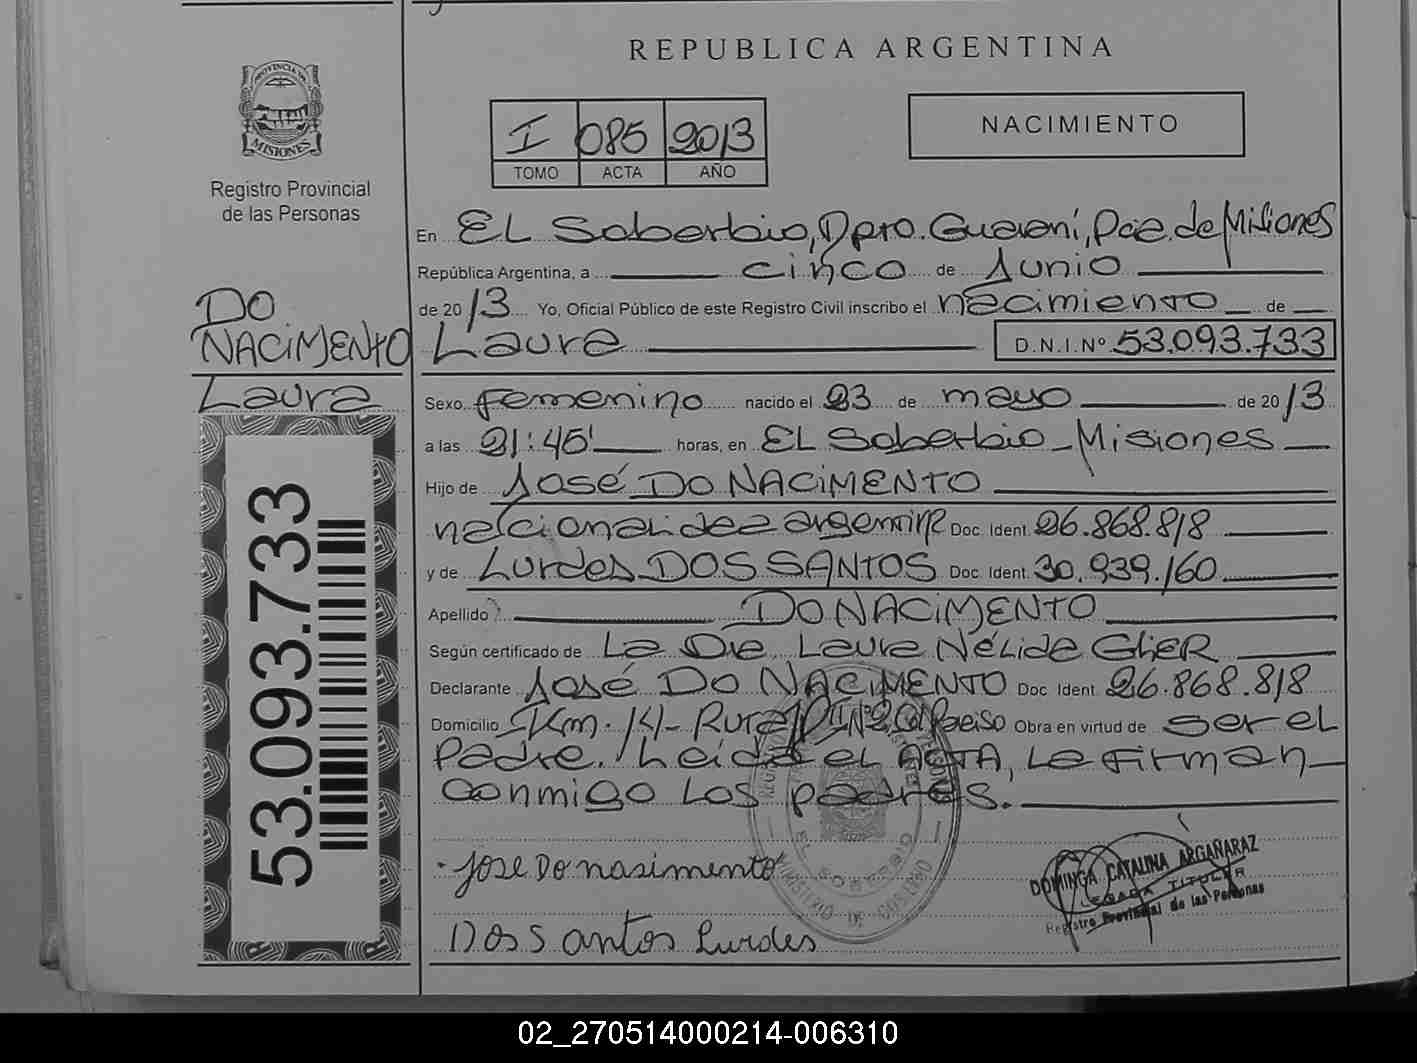 REPUBLICA ARGENTINA
PROVINCIA DE
MISIONES
Registro Provincial
de las Personas
I 085 2013
TOMO ACTA AÑO
NACIMIENTO
En EL Soberbio, Dpto. Guaraní, Pcia. de Misiones
República Argentina, a cinco de Junio
de 2013 Yo, Oficial Público de este Registro Civil inscribo el nacimiento de
Laura D.N.I.Nº 53.093.733
DO
NACiMENTO
Laura
53.093.733
Sexo femenino nacido el 23 de mayo de 2013
a las 21:45' horas, en EL Soberbio - Misiones
Hijo de José DO NACiMENTO
nacionalidad argentina Doc. Ident. 26.868.818
y de Lurdes DOS SANTOS Doc. Ident. 30.939.160
Apellido DO NACiMENTO
Según certificado de La Dra Laura Nélida GLiER
Declarante José DO NACiMENTO Doc Ident. 26.868.818
Domicilio Km. 14 - Rural Nº2 Obra en virtud de ser el
Padre. Leida el ACTA, La firman
conmigo Los padres.
EL SOBERBIO
MINISTERIO DE GOBIERNO
Jose Do nasimento
DOMINGA CATALINA ARGAÑARAZ
TITULAR
Registro Provincial de las Personas
Dos Santos Lurdes
02_270514000214-006310